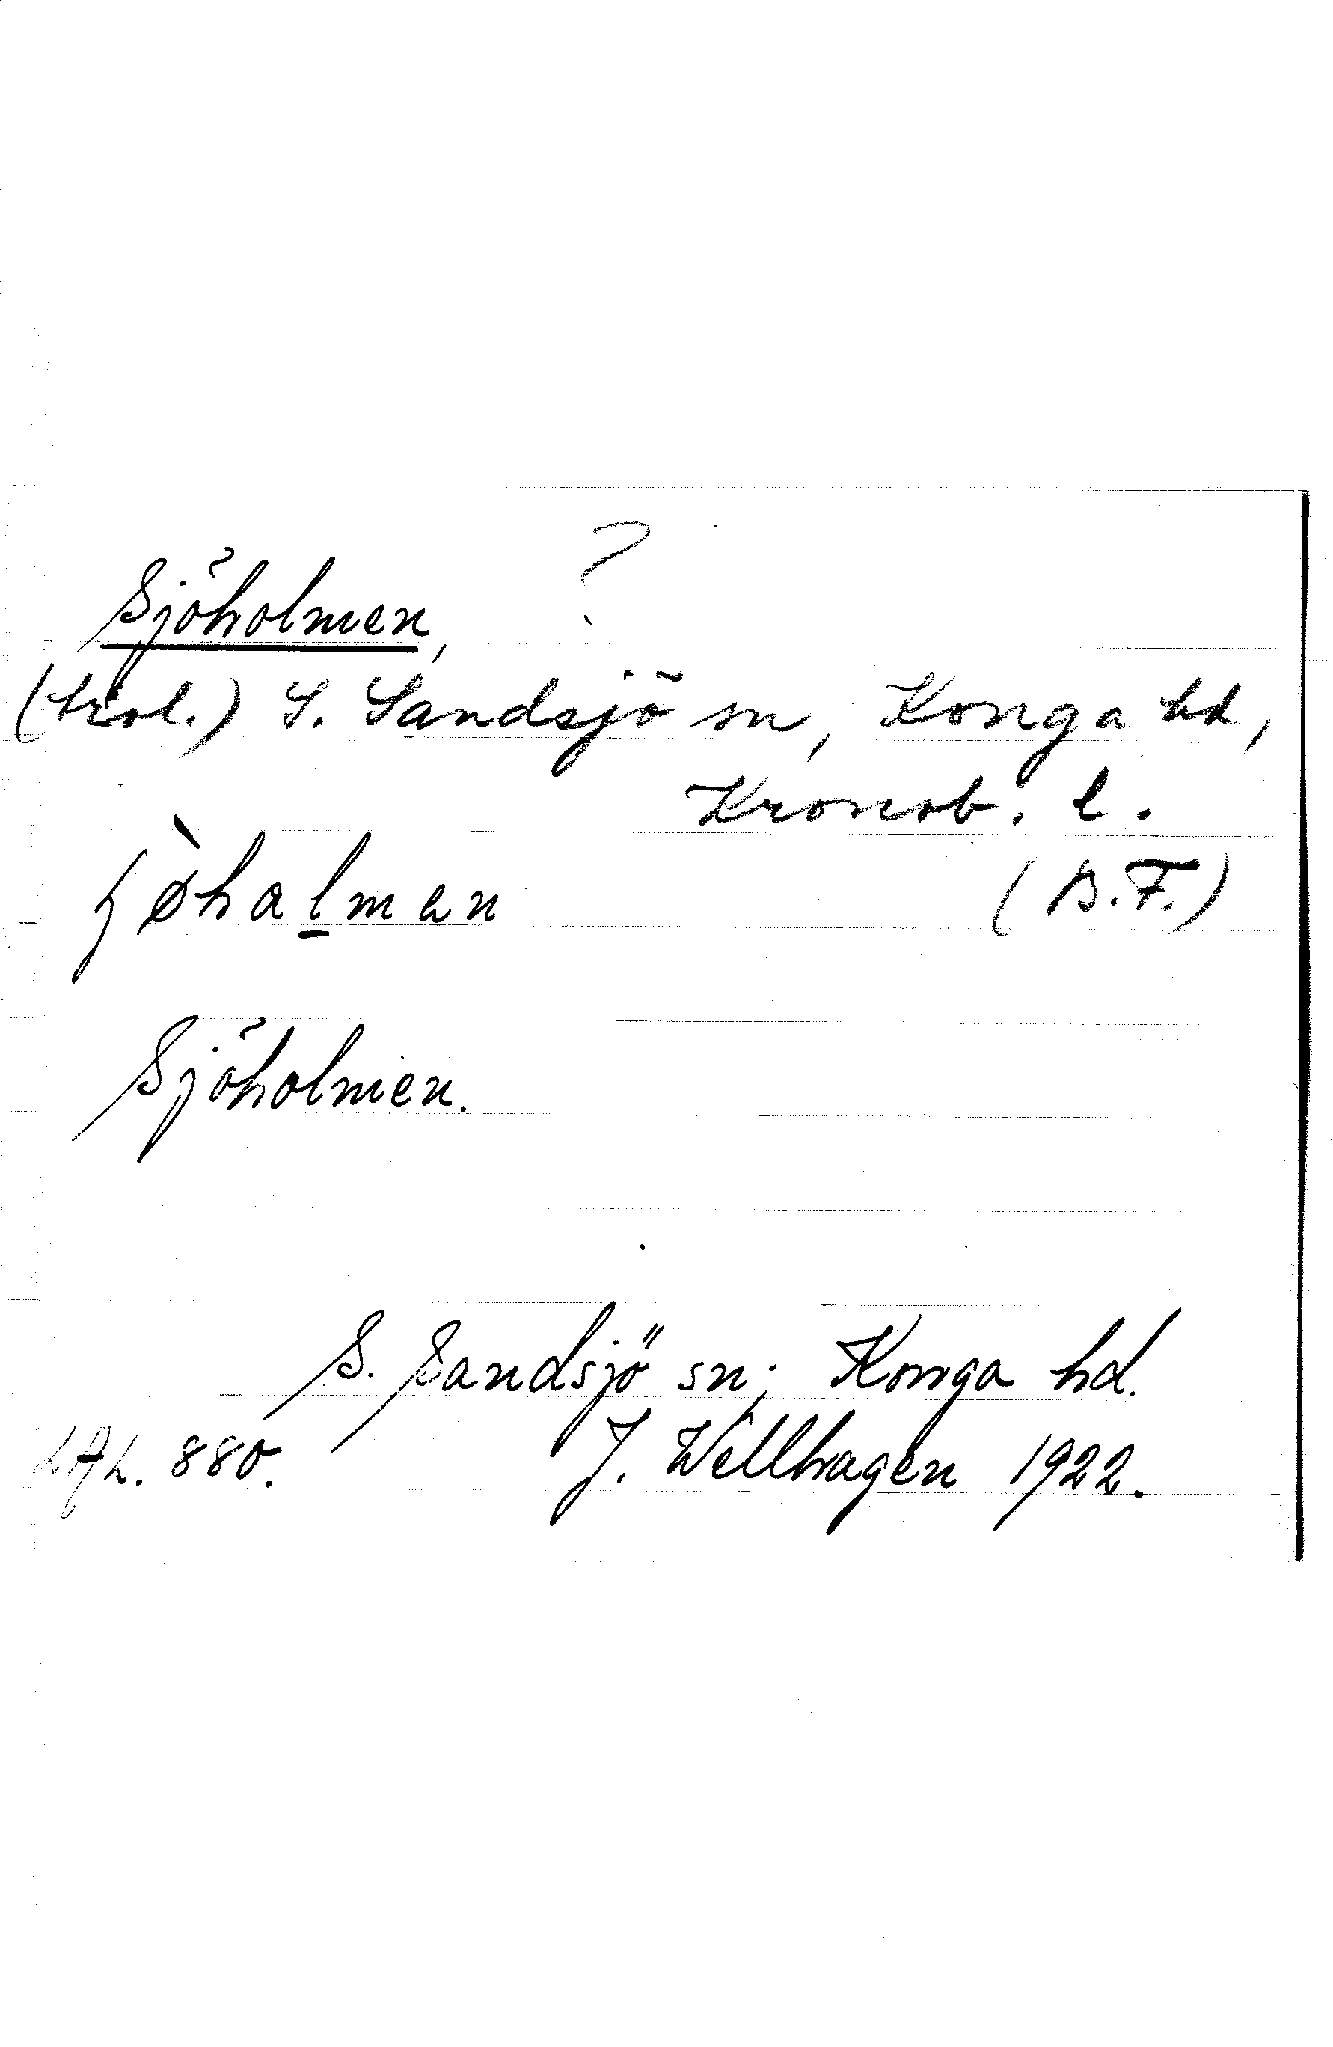 Sjöholmen, ?
(trol.) S. Sandsjö sn, Konga hd,
Kronob. l.
ʃø̀halmen (B.F.)
Sjöholmen.
S. Sandsjö sn; Konga hd.
880. J. Wellhagen 1922.